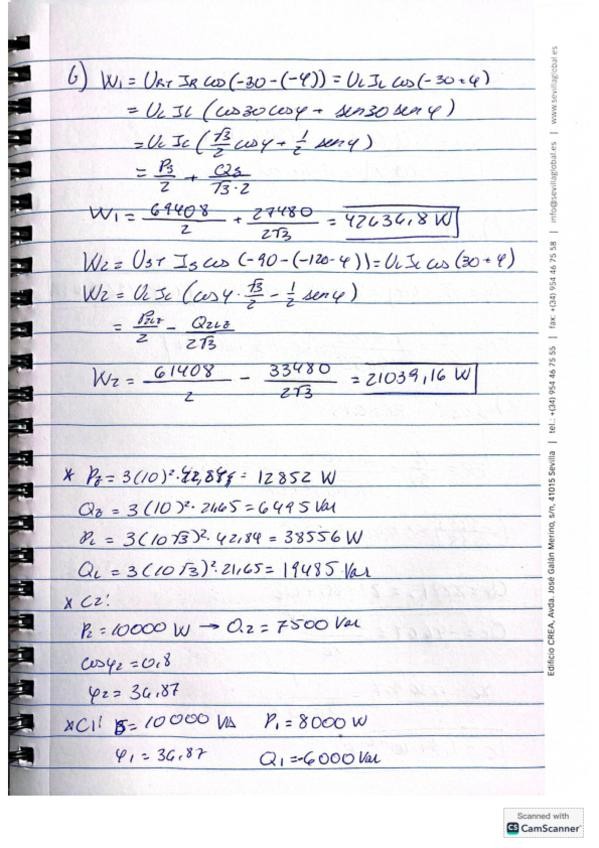 6) W₁ = U_RT I_R cos(-30-(-φ)) = U_L I_L cos(-30+φ)
= U_L I_L (cos30 cosφ + sen30 senφ)
= U_L I_L (√3/2 cosφ + 1/2 senφ)
= P₃/2 + Q₃/(√3·2)
W₁ = 69408/2 + 27480/(2√3) = 42636,8 W
W₂ = U_ST I_S cos(-90-(-120-φ)) = U_L I_L cos(30+φ)
W₂ = U_L I_L (cosφ · √3/2 - 1/2 senφ)
= /2 - /(2√3)
W₂ = 61408/2 - 33480/(2√3) = 21039,16 W
* P_z = 3(10)²· = 12852 W
Q_z = 3(10)²· 21,65 = 6495 Var
P_L = 3(10√3)². 42,84 = 38556 W
Q_L = 3(10√3)². 21,65 = 19485 Var
* C2:
P₂ = 10000 W → Q₂ = 7500 Var
cosφ₂ = 0,8
φ₂ = 36,87
* C1: S = 10000 VA P₁ = 8000 W
φ₁ = 36,87 Q₁ = -6000 Var
Edificio CREA, Avda. José Galán Merino, s/n, 41015 Sevilla | tel.: +(34) 954 46 75 55 | fax: +(34) 954 46 75 58 | info@sevillaglobal.es | www.sevillaglobal.es
Scanned with
CS CamScanner